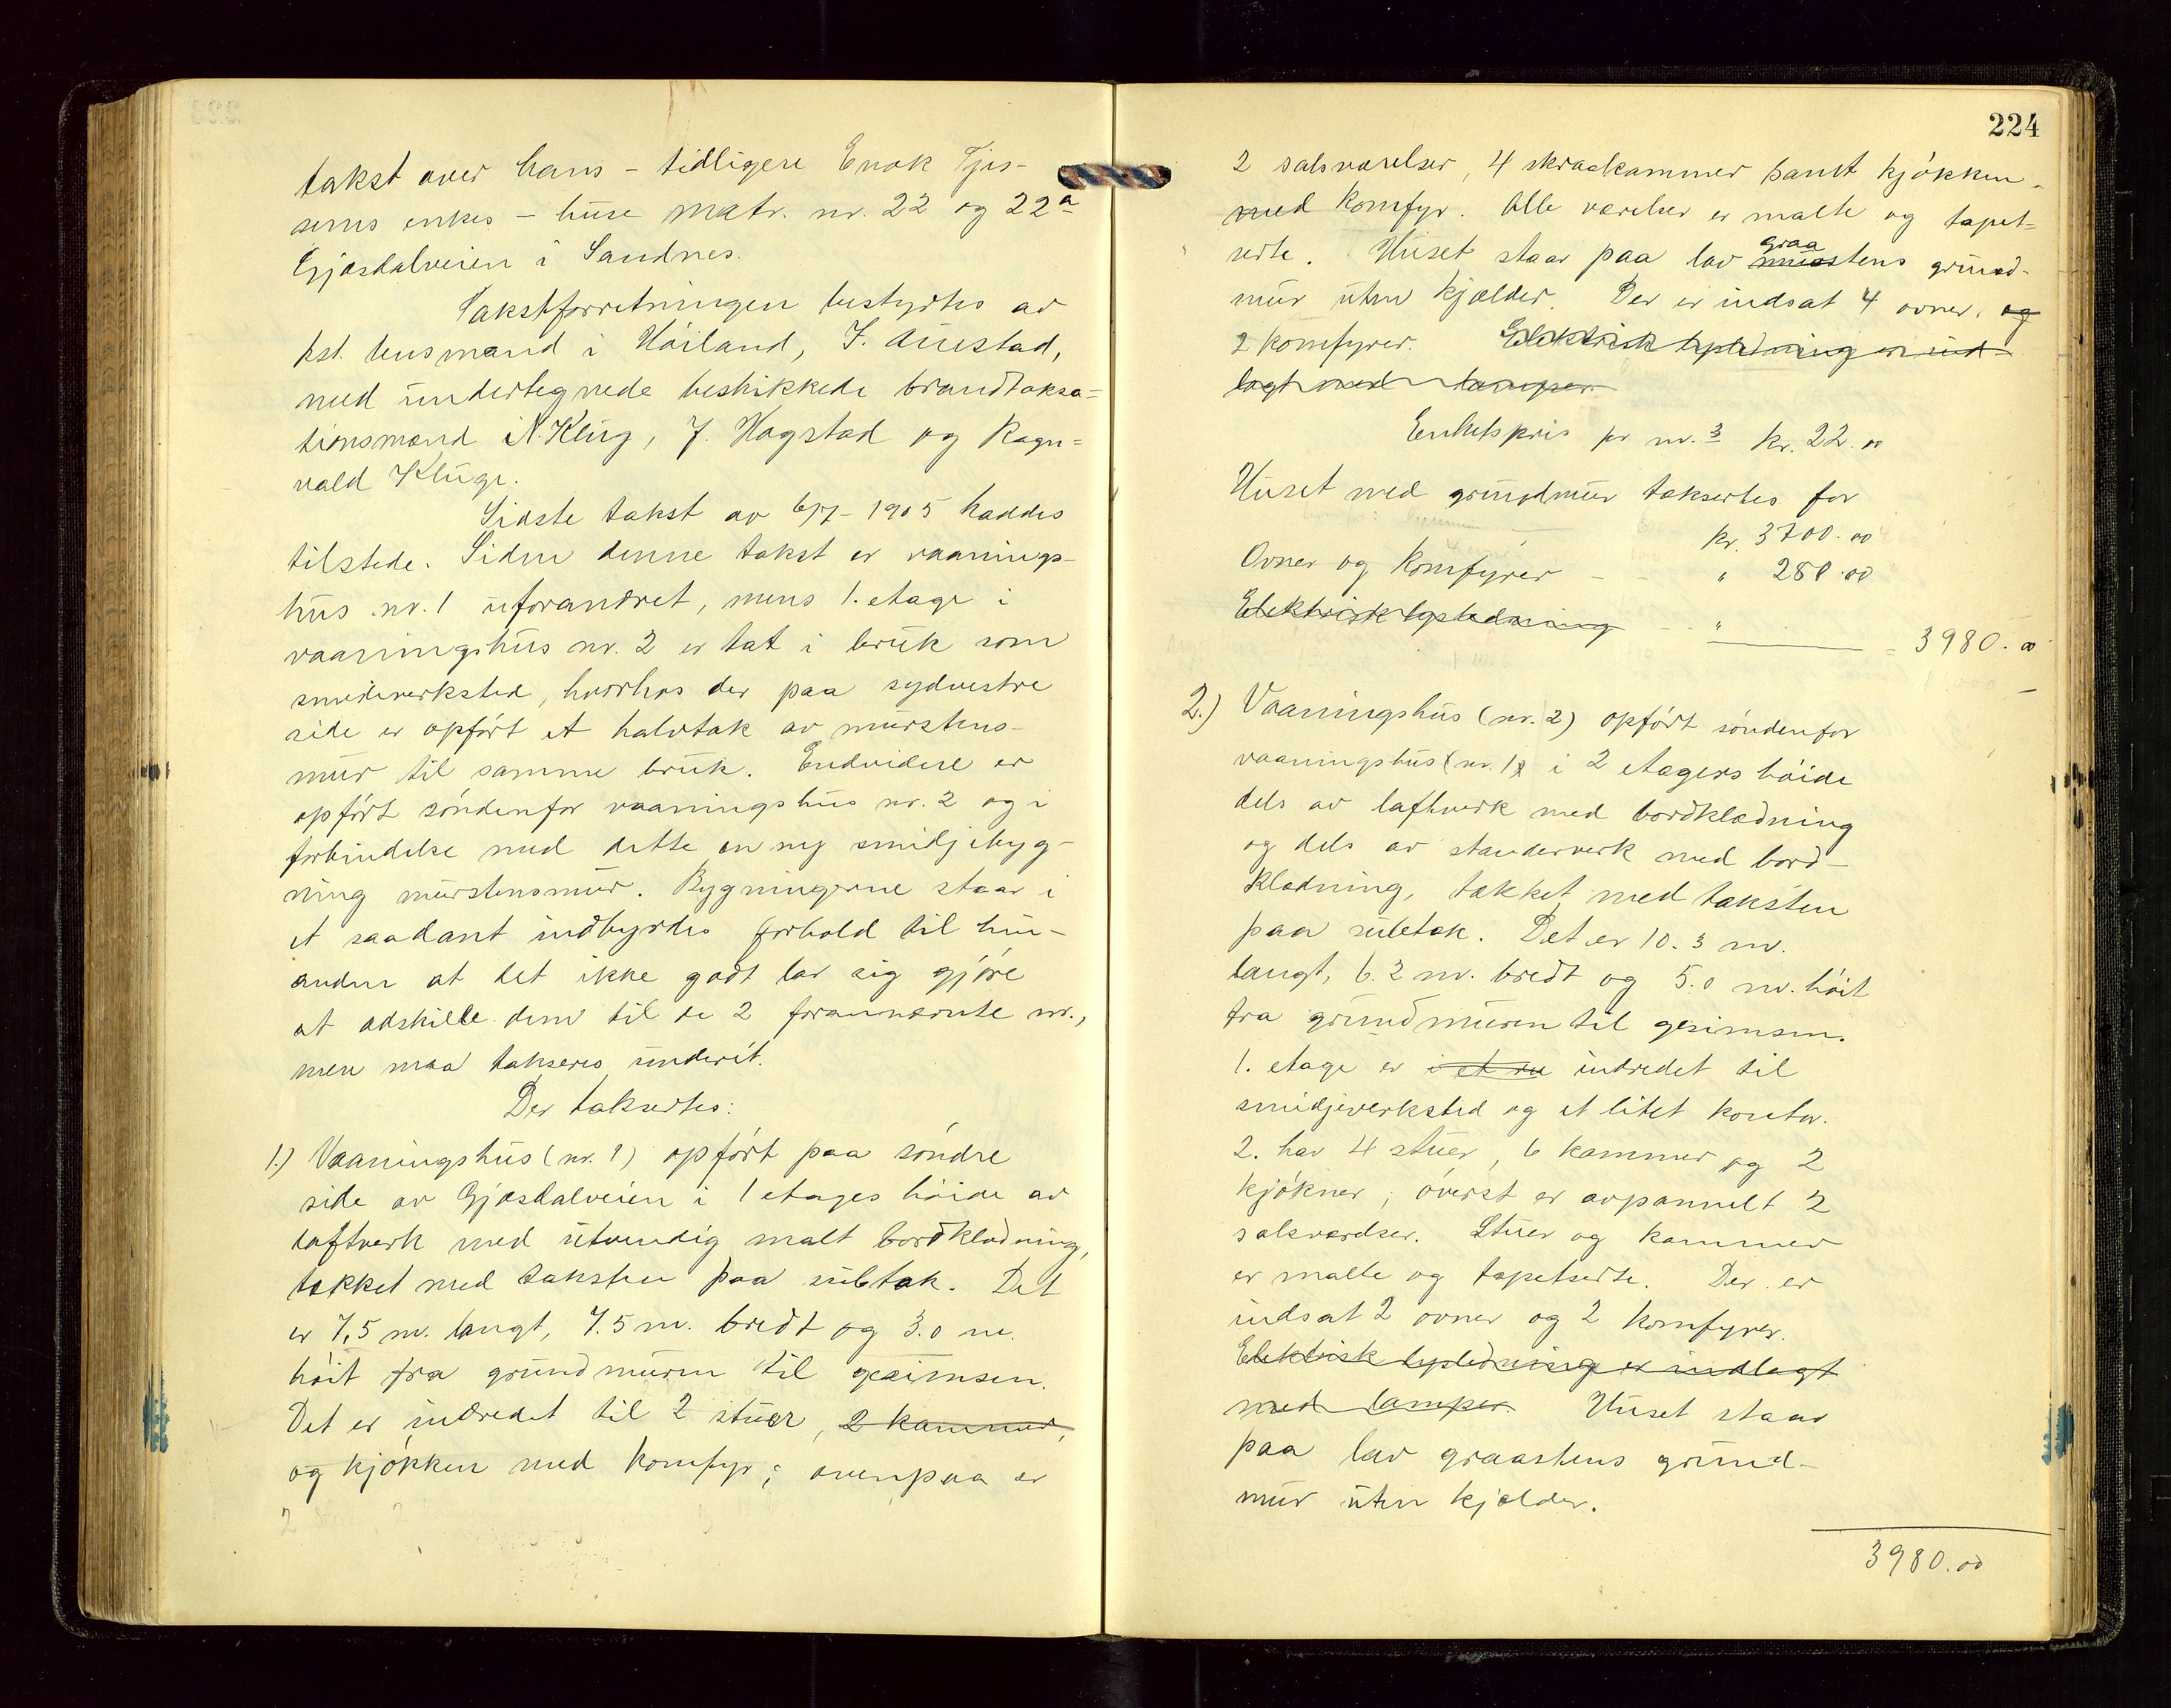 takst over hans - tidligere Enok Tjes-
sens enkes - huse matr. nr. 22 og 22a
Gjesdalveien i Sandnes.
Takstforretningen bestyrtes av
kst. lensmand i Höiland, J. Auestad,
med undertegnede beskikkede brandtaksa=
tionsmænd N. Klug, J. Hogstad og Ragn=
vald Kluge.
Sidste takst av 6/7 - 1905 haddes
tilstede. Siden denne takst er vaanings-
hus nr. 1 uforandret, mens 1. etage i
vaaningshus nr. 2 er tat i bruk som
smideverksted, hvorhos der paa sydvestre
side er opført et halvtak av murstens-
mur til samme bruk. Endvidere er
opført søndenfor vaaningshus nr. 2 og i
forbindelse med dette en ny smidjebyg-
ning murstensmur. Bygningerne staar i
et saadant indbyrdes forhold til hin-
anden at det ikke godt lar sig gjøre
at adskille dem til de 2 forannævnte nr.,
men maa takseres underét.
Der taksertes:
1.) Vaaningshus (nr. 1) opført paa søndre
side av Gjesdalveien i 1 etages höide av
laftverk med utvendig malt bordklædning,
tækket med taksten paa subtak. Det
er 7,5 m. langt, 7.5 m. bredt og 3.0 m.
höit fra grundmuren til gesimsen.
Det er indredet til 2 stuer, 2 kammer,
og kjøkken med komfyr; ovenpaa er
224
2 salsværelser, 4 skraakammer samt kjøkken
med komfyr. Alle værelser er malte og tapet-
serte. Huset staar paa lav graa murstens grund-
mur uten kjælder. Der er indsat 4 ovner, og
2 komfyrer. Elektrisk lysledning er ind-
lagt med lamper.
Enhetspris pr m.3 kr. 22.00
Huset med grundmur taksertes for
kr. 3700.00
Ovner og komfyrer - - " 280.00
Elektrisk lysledning - - "
= 3980.00
2.) Vaaningshus (nr. 2) opført søndenfor
vaaningshus (nr. 1) i 2 etagers höide
dels av laftverk med bordklædning
og dels av standerverk med bord-
klædning, tækket med taksten
paa subtak. Det er 10.3 m.
langt, 6.2 m. bredt og 5.0 m. höit
fra grundmuren til gesimsen.
1. etage er i et ru indredet til
smidjeverksted og et litet kontor.
2. har 4 stuer, 6 kammer og 2
kjøkner; øverst er avpannelt 2
salsværelser. Stuer og kammer
er malte og tapetserte. Der er
indsat 2 ovner og 2 komfyrer.
Elektrisk lysledning er indlagt
med lamper. Huset staar
paa lav graastens grund-
mur uten kjælder.
3980.00